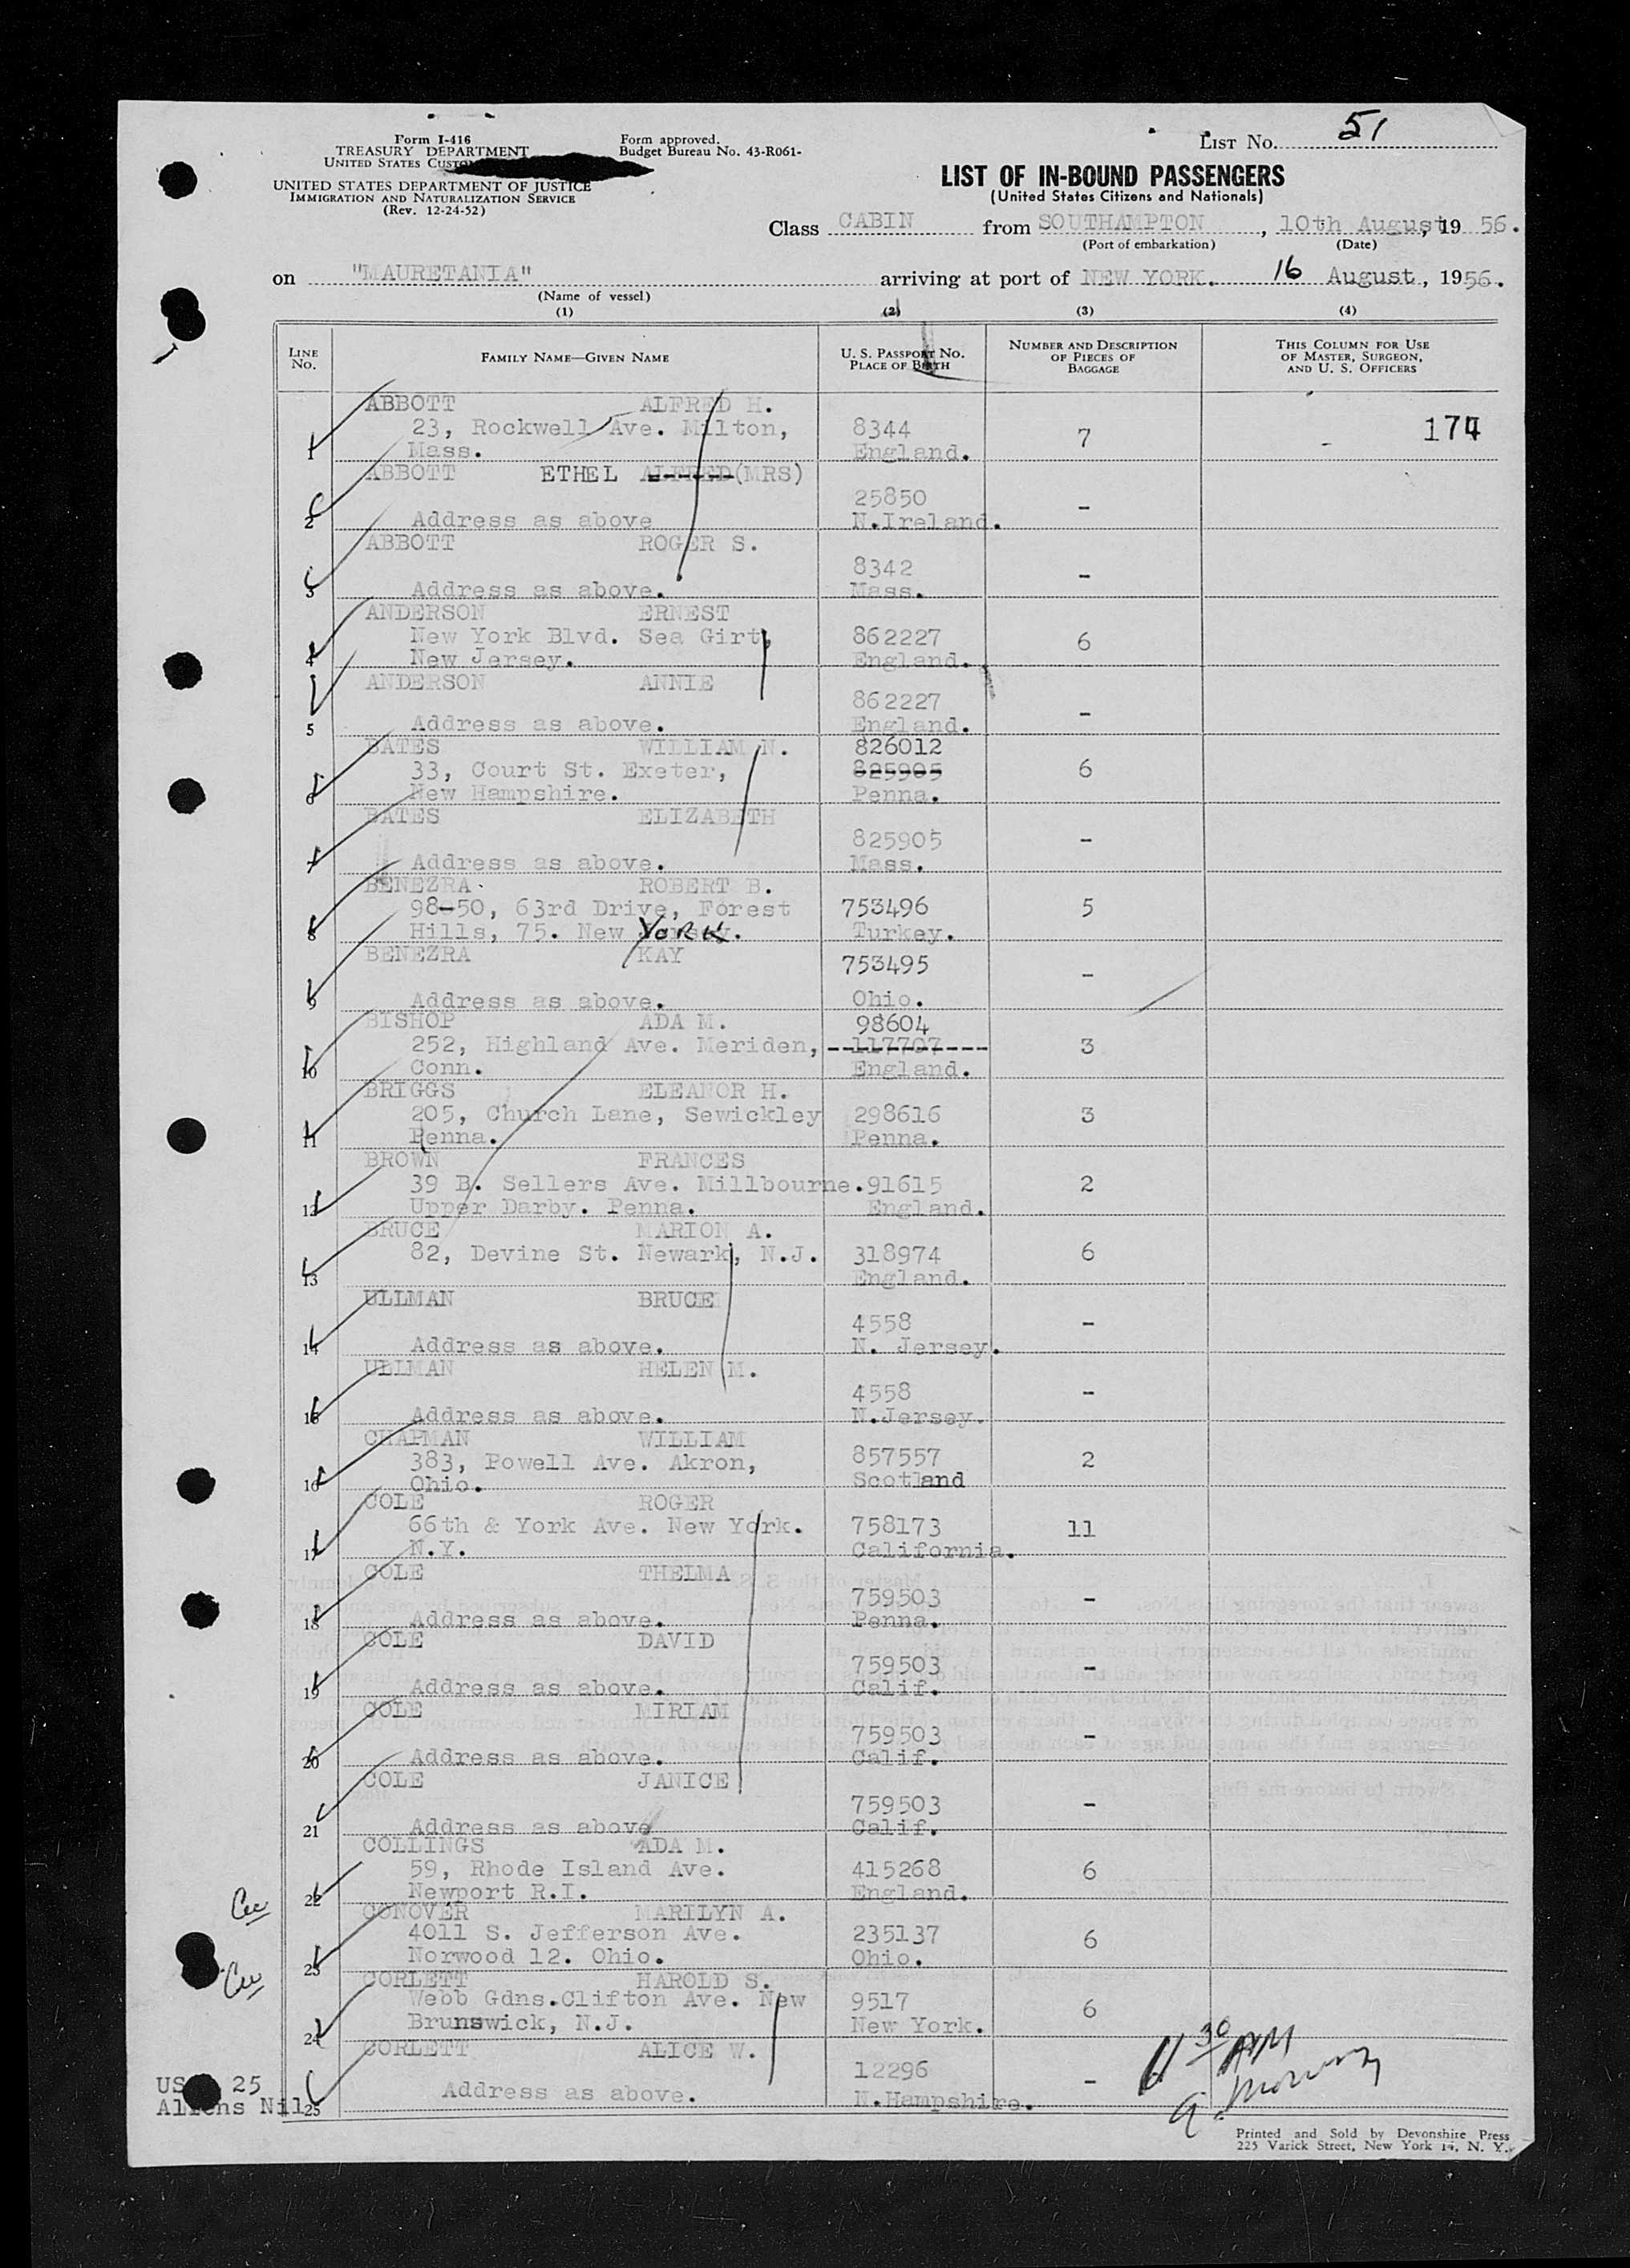 Form I-416
TREASURY DEPARTMENT
UNITED STATES
Form approved.
Budget Bureau No. 43-R061-
LIST NO. 51
UNITED STATES DEPARTMENT OF JUSTICE
IMMIGRATION AND NATURALIZATION SERVICE
(Rev. 12-24-52)
LIST OF IN-BOUND PASSENGERS
(United States Citizens and Nationals)
Class CABIN from SOUTHAMPTON, 10th August, 19 56.
(Port of embarkation) (Date)
on "MAURETANIA" arriving at port of NEW YORK. 16 August, 1956.
(Name of vessel)
(1) (2) (3) (4)
LINE No. FAMILY NAME—GIVEN NAME U. S. PASSPORT NO. PLACE OF BIRTH NUMBER AND DESCRIPTION OF PIECES OF BAGGAGE THIS COLUMN FOR USE OF MASTER, SURGEON, AND U. S. OFFICERS
ABBOTT ALFRED H.
23, Rockwell Ave. Milton, 8344 7 174
1 Mass. England.
ABBOTT ETHEL ALFRED (MRS)
25850 -
2 Address as above N.Ireland.
ABBOTT ROGER S.
8342 -
3 Address as above. Mass.
ANDERSON ERNEST
New York Blvd. Sea Girt, 862227 6
4 New Jersey. England.
ANDERSON ANNIE
862227 -
5 Address as above. England.
BATES WILLIAM N. 826012
33, Court St. Exeter, 825905 6
6 New Hampshire. Penna.
BATES ELIZABETH
825905 -
7 Address as above. Mass.
BENEZRA ROBERT B.
98-50, 63rd Drive, Forest 753496 5
8 Hills, 75. New YORK. Turkey.
BENEZRA KAY 753495
-
9 Address as above. Ohio.
BISHOP ADA M. 98604
252, Highland Ave. Meriden, 117707 3
10 Conn. England.
BRIGGS ELEANOR H.
205, Church Lane, Sewickley 298616 3
11 Penna. Penna.
BROWN FRANCES
39 B. Sellers Ave. Millbourne. 91615 2
12 Upper Darby. Penna. England.
BRUCE MARION A.
82, Devine St. Newark, N.J. 318974 6
13 England.
ULLMAN BRUCE
4558 -
14 Address as above. N. Jersey.
ULLMAN HELEN M.
4558 -
15 Address as above. N.Jersey.
CHAPMAN WILLIAM
383, Powell Ave. Akron, 857557 2
16 Ohio. Scotland
COLE ROGER
66th & York Ave. New York. 758173 11
17 N.Y. California.
COLE THELMA
759503 -
18 Address as above. Penna.
COLE DAVID
759503 -
19 Address as above. Calif.
COLE MIRIAM
759503 -
20 Address as above. Calif.
COLE JANICE
759503 -
21 Address as above Calif.
COLLINGS ADA M.
59, Rhode Island Ave. 415268 6
22 Newport R.I. England.
CONOVER MARILYN A.
4011 S. Jefferson Ave. 235137 6
23 Norwood 12. Ohio. Ohio.
CORLETT HAROLD S.
Webb Gdns.Clifton Ave. New 9517 6
24 Brunswick, N.J. New York.
CORLETT ALICE W.
12296 -
25 Address as above. N.Hampshire.
11 30 AM
US 25
Aliens Nil
Printed and Sold by Devonshire Press
225 Varick Street, New York 14, N. Y.